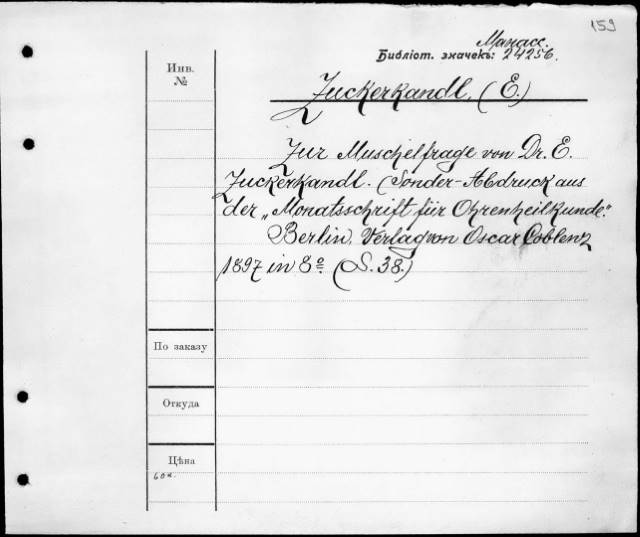 159
Манасс.
Библіот. значекъ: 24256.
Инв.
№
Zuckerkandl. (E.)
Zur Muschelfrage von Dr. E.
Zuckerkandl. (Sonder-Abdruck aus
der „Monatsschrift für Ohrenheilkunde."
Berlin, Verlag von Oscar Coblenz
1897 in 8º (S. 38.)
По заказу
Откуда
Цѣна
60 к.